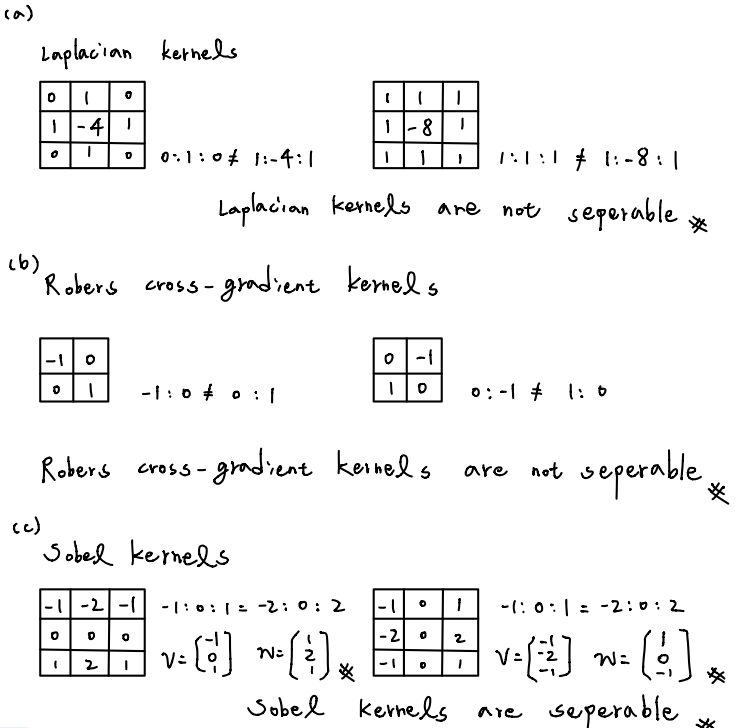 (a)
Laplacian kernels
0 1 0 1 1 1
1 -4 1 1 -8 1
0 1 0 0:1:0≠ 1:-4:1 1 1 1 1:1:1 ≠ 1:-8:1
Laplacian kernels are not seperable ※
(b)
Robers cross-gradient kernels
-1 0 0 -1
0 1 -1:0 ≠ 0:1 1 0 0:-1 ≠ 1:0
Robers cross-gradient kernels are not seperable ※
(c)
Sobel kernels
-1 -2 -1 -1:0:1 = -2:0:2 -1 0 1 -1:0:1 = -2:0:2
0 0 0 v=(-1 0 1) w=(1 2 1) ※ -2 0 2 v=(-1 -2 -1) w=(1 0 -1) ※
1 2 1 -1 0 1
Sobel kernels are seperable ※